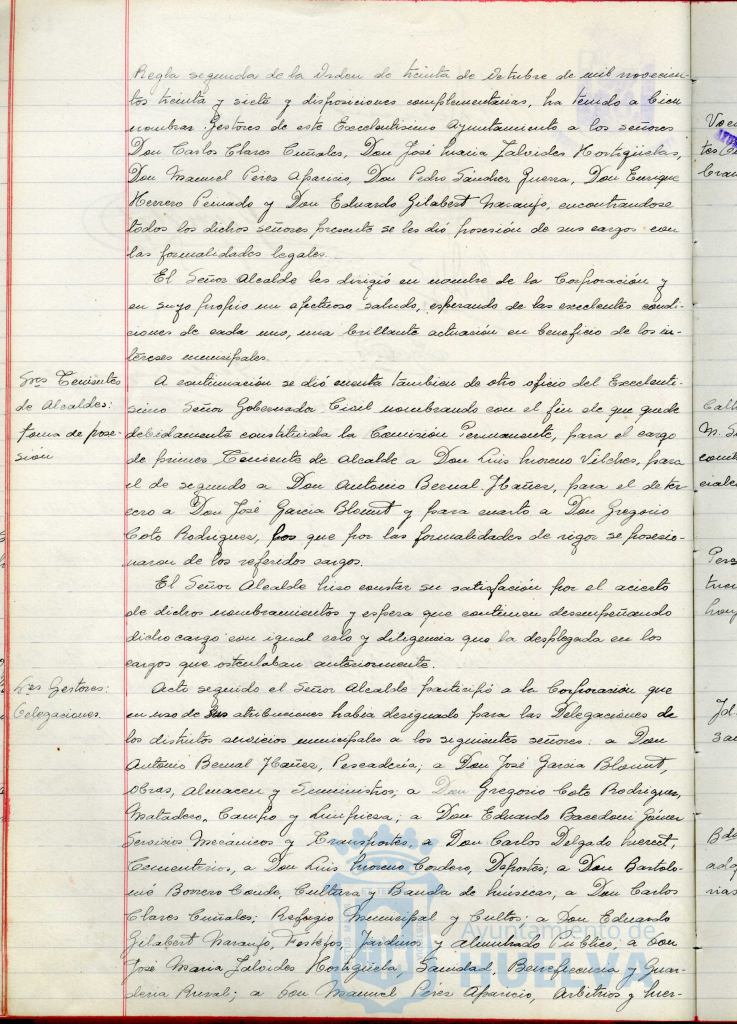 Regla segunda de la Orden de treinta de Octubre de mil novecien-
tos treinta y siete y disposiciones complementarias, ha tenido a bien
nombrar Gestores de este Excelentísimo Ayuntamiento a los señores
Don Carlos Clares Cuñales, Don José Maria Zalvides Hortigüelas,
Don Manuel Pérez Aparicio, Don Pedro Sánchez Guerra, Don Enrique
Herrero Penado y Don Eduardo Gilabert Naranjo, encontrandose
todos los dichos señores presente se les dió posesión de sus cargos con
las formalidades legales.
El Señor Alcalde les dirigió en nombre de la Corporación y
en suyo propio un afectuoso saludo, esperando de las excelentes condi-
ciones de cada uno, una brillante actuación en beneficio de los in-
tereses municipales.
Sres Tenientes
de Alcaldes:
toma de pose-
sión
A continuación se dió cuenta tambien de otro oficio del Excelenti-
simo Señor Gobernador Civil nombrando con el fin de que quede
debidamente constituida la Comisión Permanente, para el cargo
de primer Teniente de Alcalde a Don Luis Moreno Vilches, para
el de segundo a Don Antonio Bernal Ibañez, para el de ter-
cero a Don José Garcia Blount y para cuarto a Don Gregorio
Coto Rodriguez, los que por las formalidades de rigor se posesio-
naron de los referidos cargos.
El Señor Alcalde hizo constar su satisfación por el acierto
de dichos nombramientos y espera que continuen desempeñando
dicho cargo con igual celo y diligencia que la desplegada en los
cargos que ostentaban anteriormente.
Sres Gestores:
Delegaciones.
Acto seguido el Señor Alcalde participó a la Corporación que
en uso de sus atribuciones habia designado para las Delegaciones de
los distintos servicios municipales a los siguientes señores: a Don
Antonio Bernal Ibañez, Pescaderia; a Don José Garcia Blount,
Obras, Almacen y Suministros; a Don Gregorio Coto Rodriguez,
Matadero, Campo y Limpieza; a Don Eduardo Bacedoni
Servicios Mecánicos y Transportes, a Don Carlos Delgado
Cementerios, a Don Luis Moreno Cordero, Deportes; a Don Bartolo-
mé Borrero Conde, Cultura y Banda de Músicas, a Don Carlos
Clares Cuñales; Refugio Municipal y Cultos: a Don Eduardo
Gilabert Naranjo, Festejos, Jardines y Alumbrado Público; a Don
José Maria Zalvides Hortigüela, Sanidad, Beneficencia y Guar-
deria Rural; a Don Manuel Pérez Aparicio, Arbitrios y Mer-
Ayuntamiento de
HUELVA